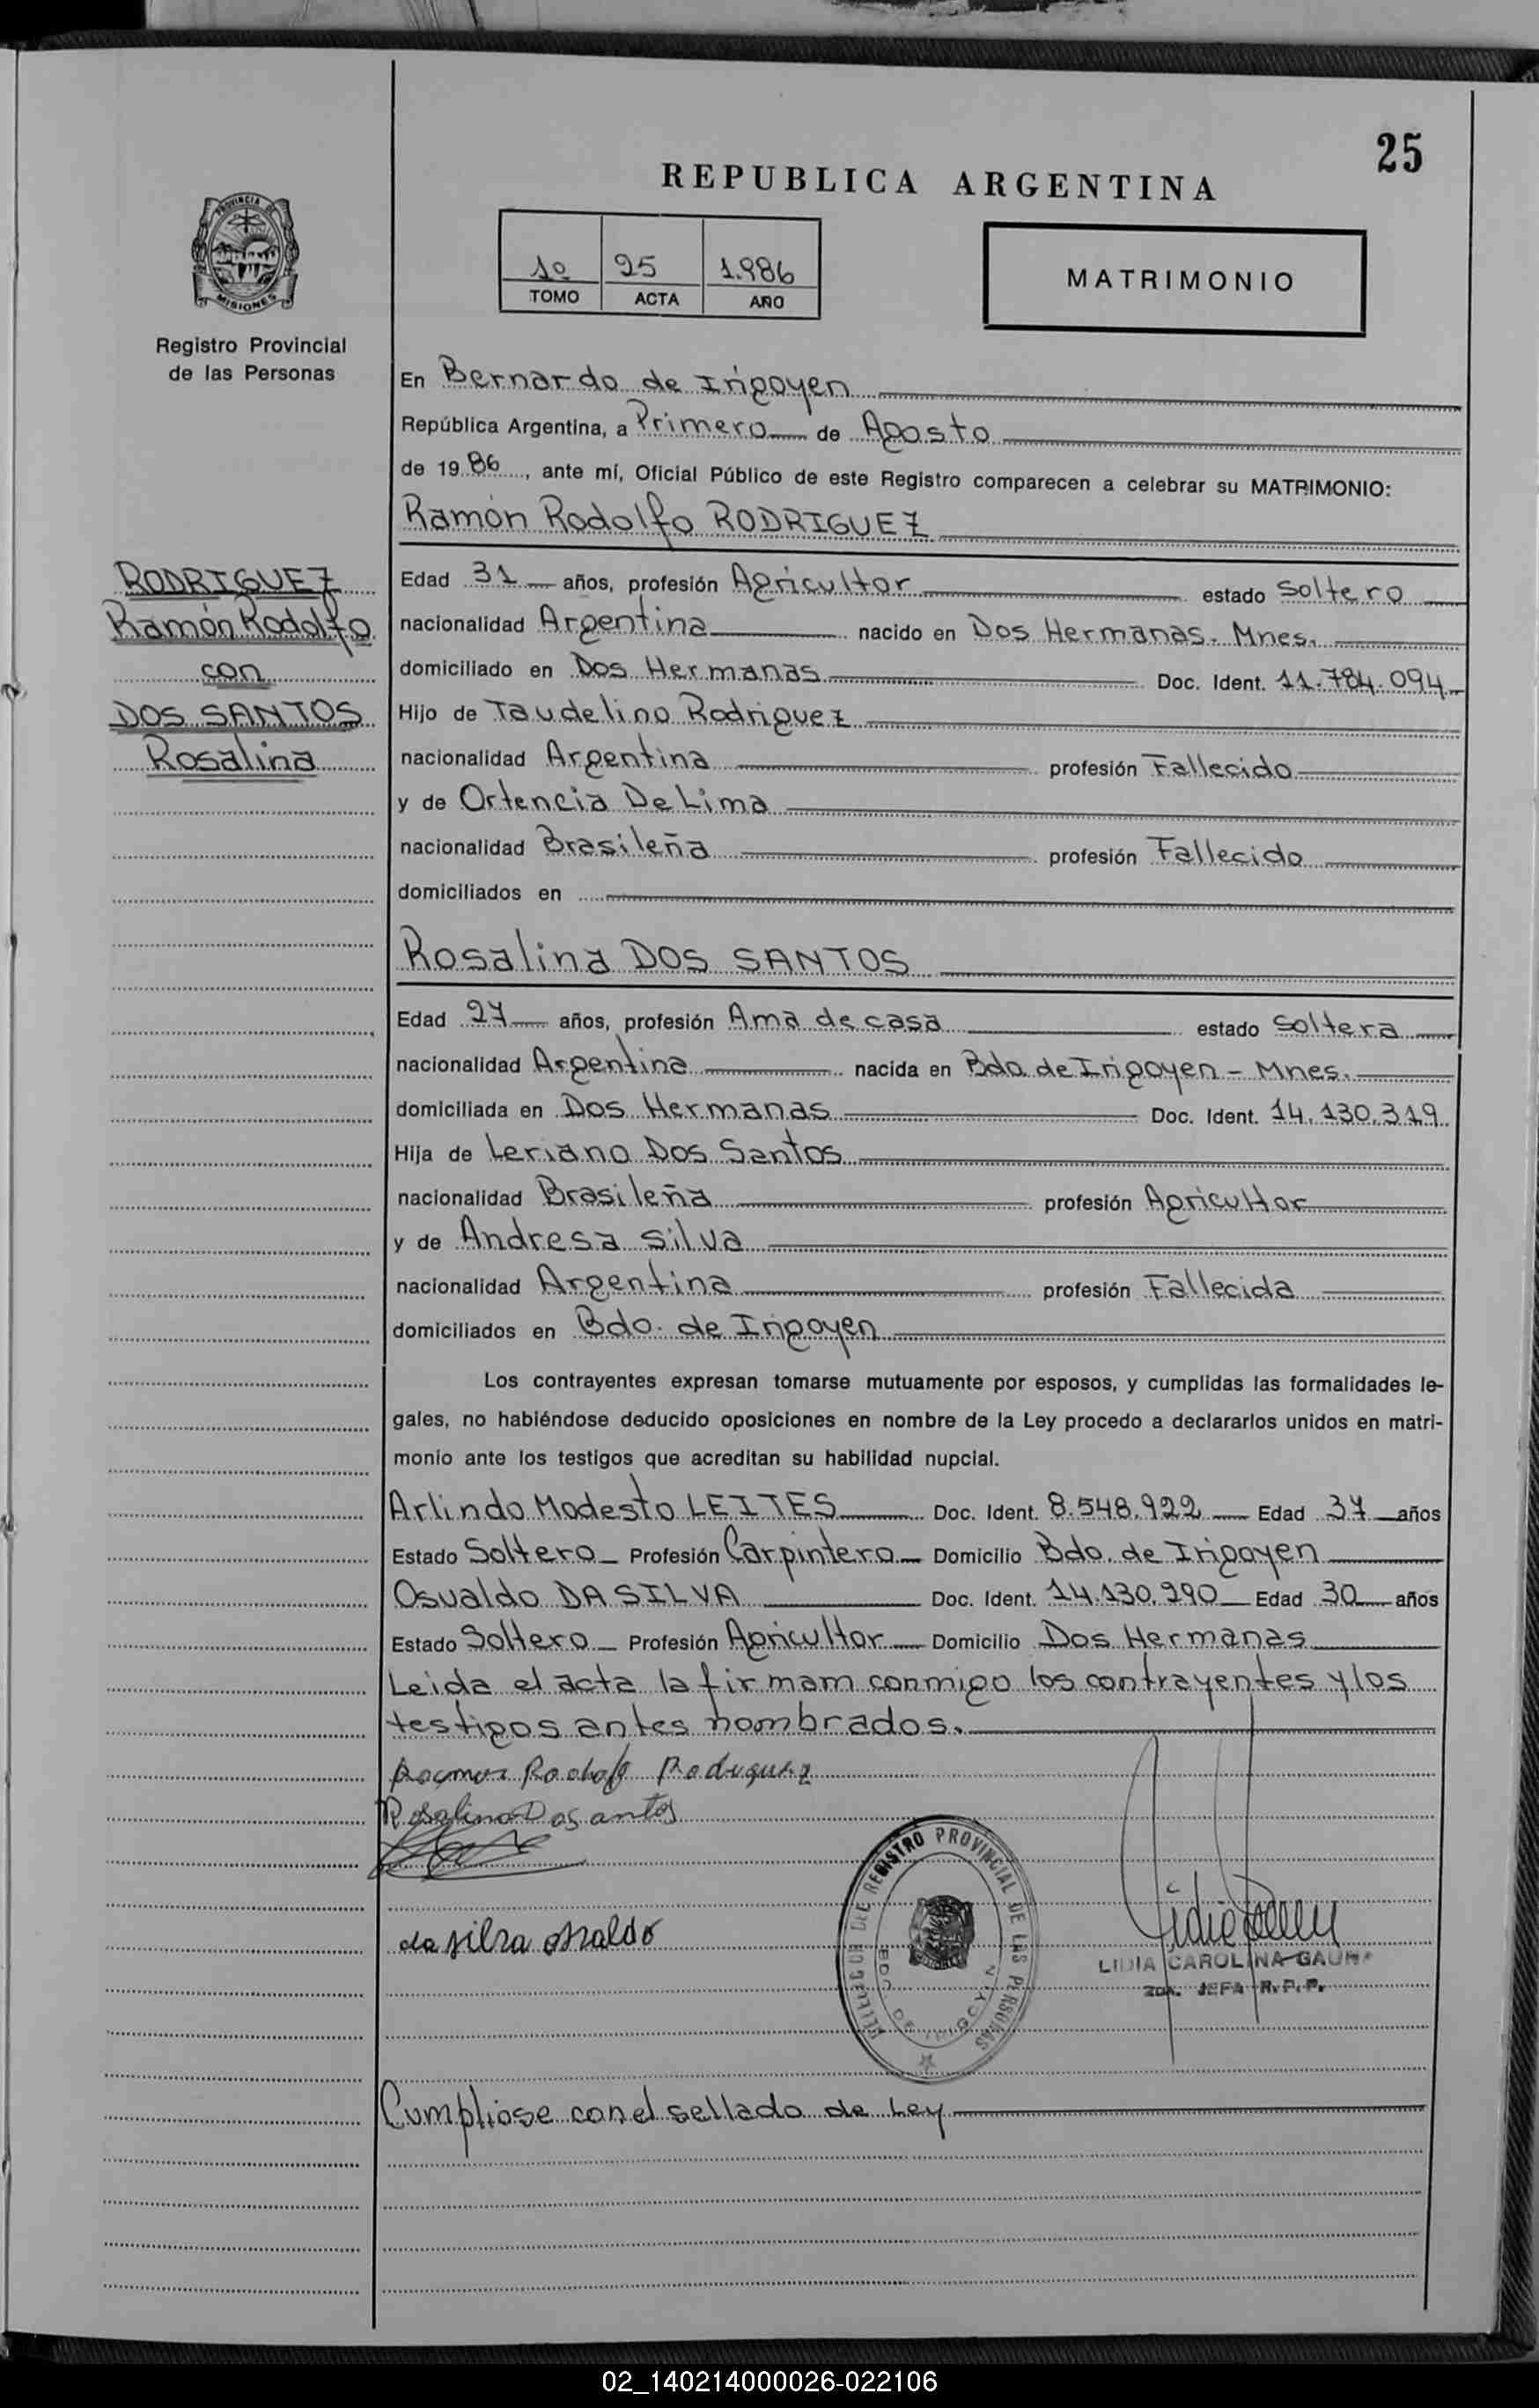 25
REPUBLICA ARGENTINA
1º 25 1.986
TOMO ACTA AÑO
MATRIMONIO
PROVINCIA DE
MISIONES
Registro Provincial
de las Personas
En Bernardo de Irigoyen
República Argentina, a Primero de Agosto
de 19 86, ante mí, Oficial Público de este Registro comparecen a celebrar su MATRIMONIO:
Ramón Rodolfo RODRIGUEZ
RODRIGUEZ
Ramón Rodolfo
con
DOS SANTOS
Rosalina
Edad 31 años, profesión Agricultor estado Soltero
nacionalidad Argentina nacido en Dos Hermanas. Mnes.
domiciliado en Dos Hermanas Doc. Ident. 11.784.094
Hijo de Taudelino Rodriguez
nacionalidad Argentina profesión Fallecido
y de Ortencia De Lima
nacionalidad Brasileña profesión Fallecido
domiciliados en
Rosalina DOS SANTOS
Edad 27 años, profesión Ama de casa estado Soltera
nacionalidad Argentina nacida en Bdo. de Irigoyen - Mnes.
domiciliada en Dos Hermanas Doc. Ident. 14.130.319
Hija de Leriano Dos Santos
nacionalidad Brasileña profesión Agricultor
y de Andresa Silva
nacionalidad Argentina profesión Fallecida
domiciliados en Bdo. de Irigoyen
Los contrayentes expresan tomarse mutuamente por esposos, y cumplidas las formalidades le-
gales, no habiéndose deducido oposiciones en nombre de la Ley procedo a declararlos unidos en matri-
monio ante los testigos que acreditan su habilidad nupcial.
Arlindo Modesto LEITES Doc. Ident. 8.548.922 Edad 37 años
Estado Soltero Profesión Carpintero Domicilio Bdo. de Irigoyen
Osvaldo DA SILVA Doc. Ident. 14.130.290 Edad 30 años
Estado Soltero Profesión Agricultor Domicilio Dos Hermanas
Leida el acta la firmam conmigo los contrayentes y los
testigos antes nombrados.
Rodriguez
Rosalina Dos antos
da silva osvaldo
REGISTRO PROVINCIAL DE LAS PERSONAS
BDO. DE IRIGOYEN
LIDIA CAROLINA GAUNA
JEFA R.P.P.
Cumpliose con el sellado de Ley
02_140214000026-022106